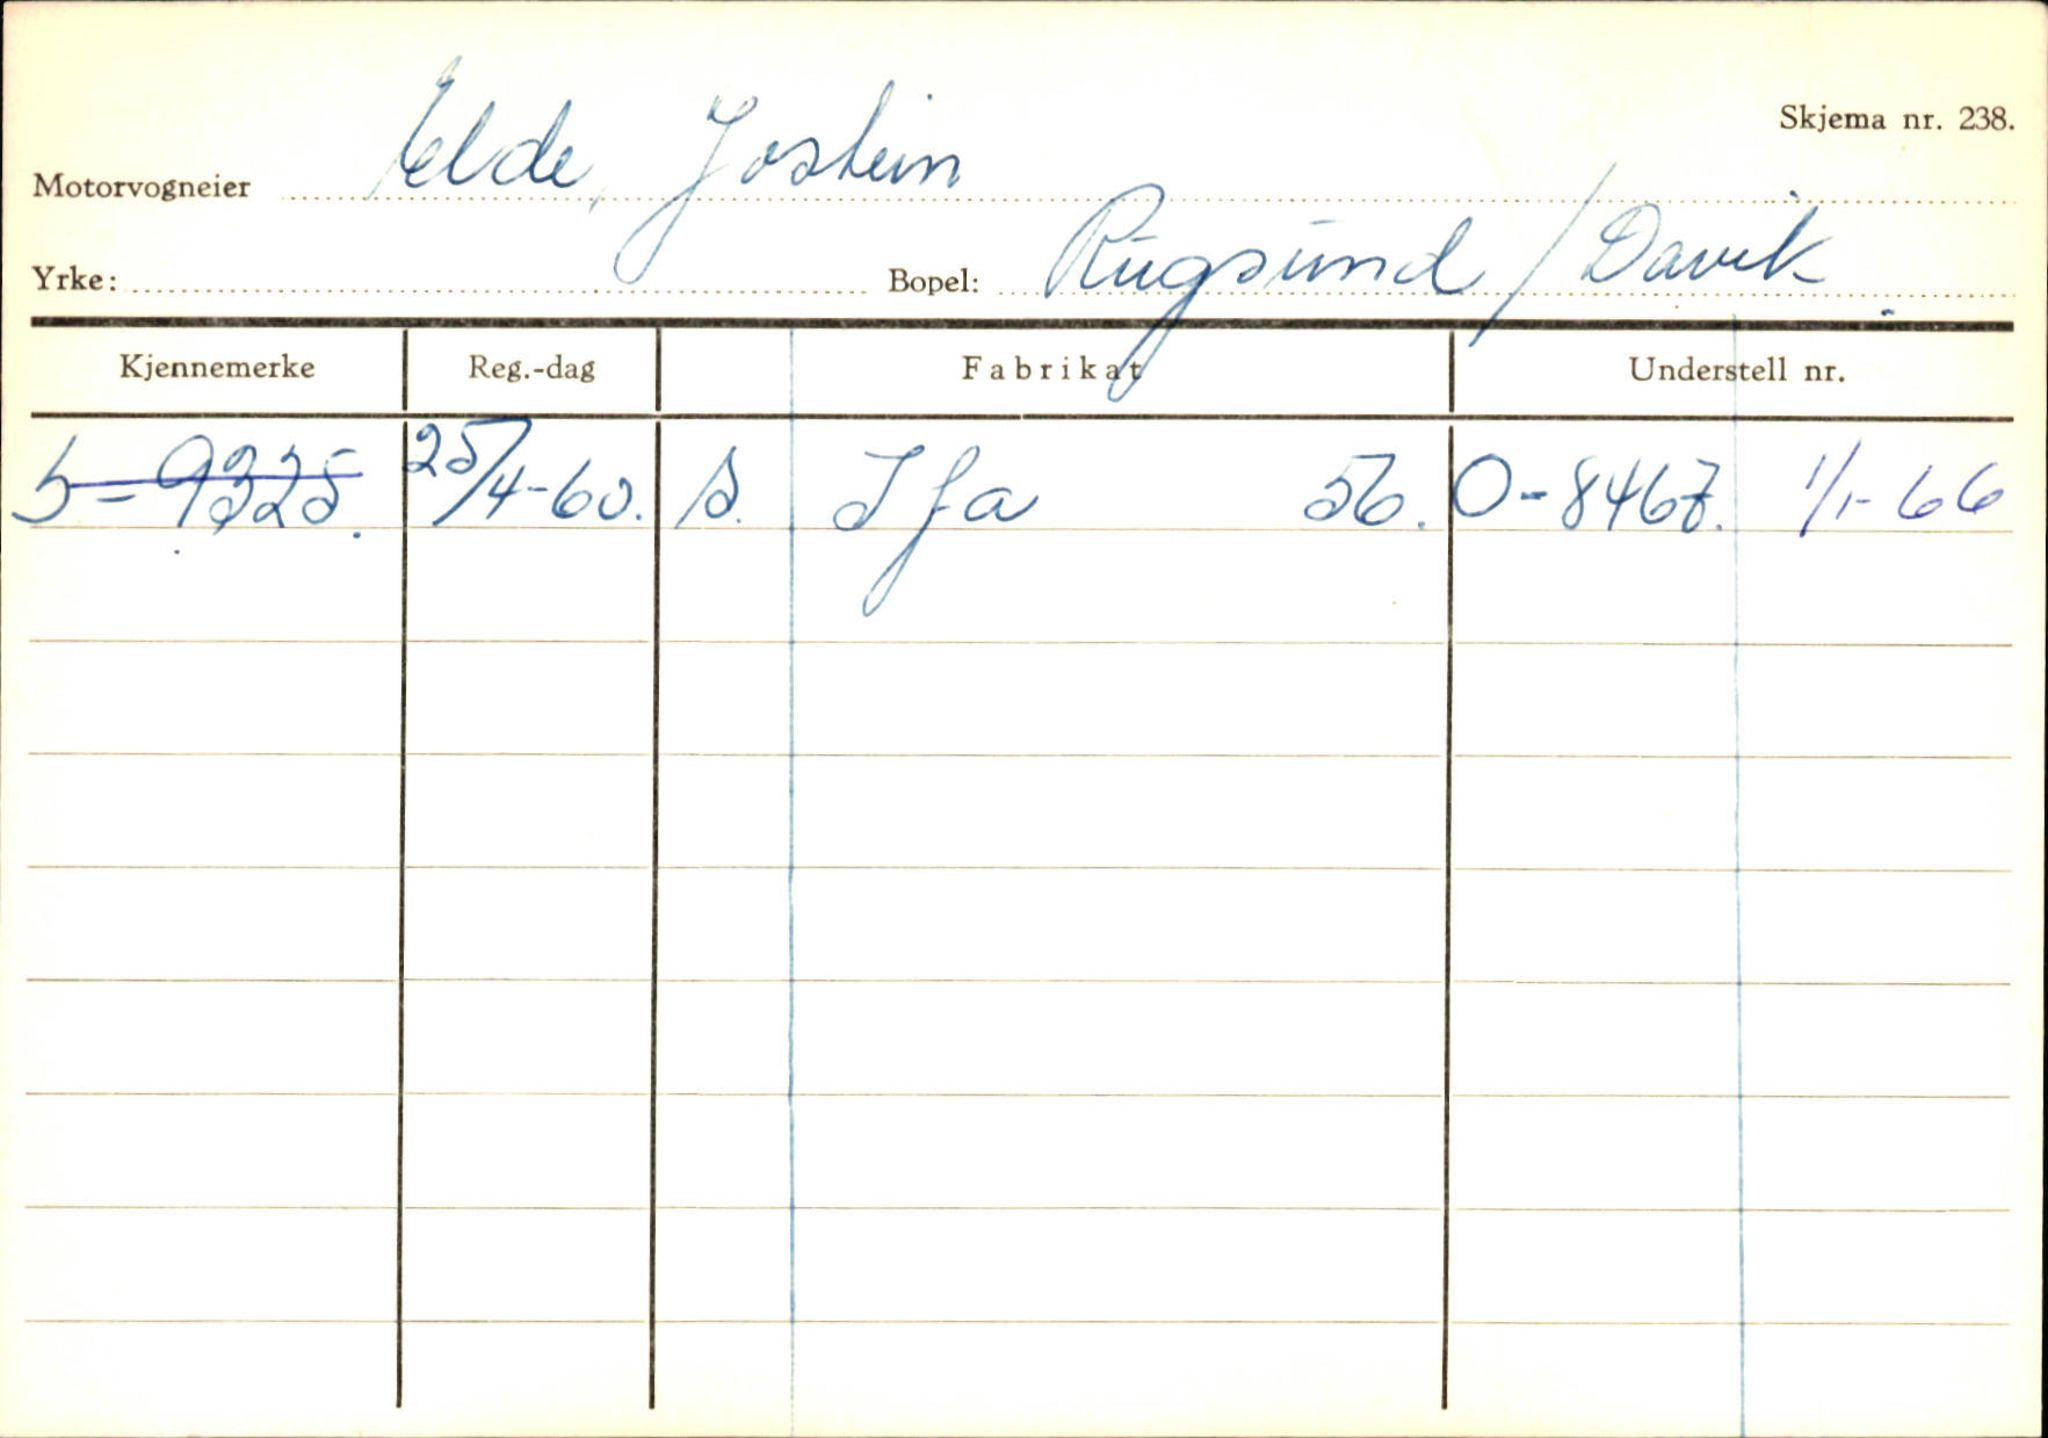 Skjema nr. 238.
Motorvogneier Elde, Jostein
Yrke: Bopel: Rugsund / Davik
Kjennemerke Reg.-dag Fabrikat Understell nr.
S-9325. 25/4-60. S. Ifa 56. O-8467. 1/1-66